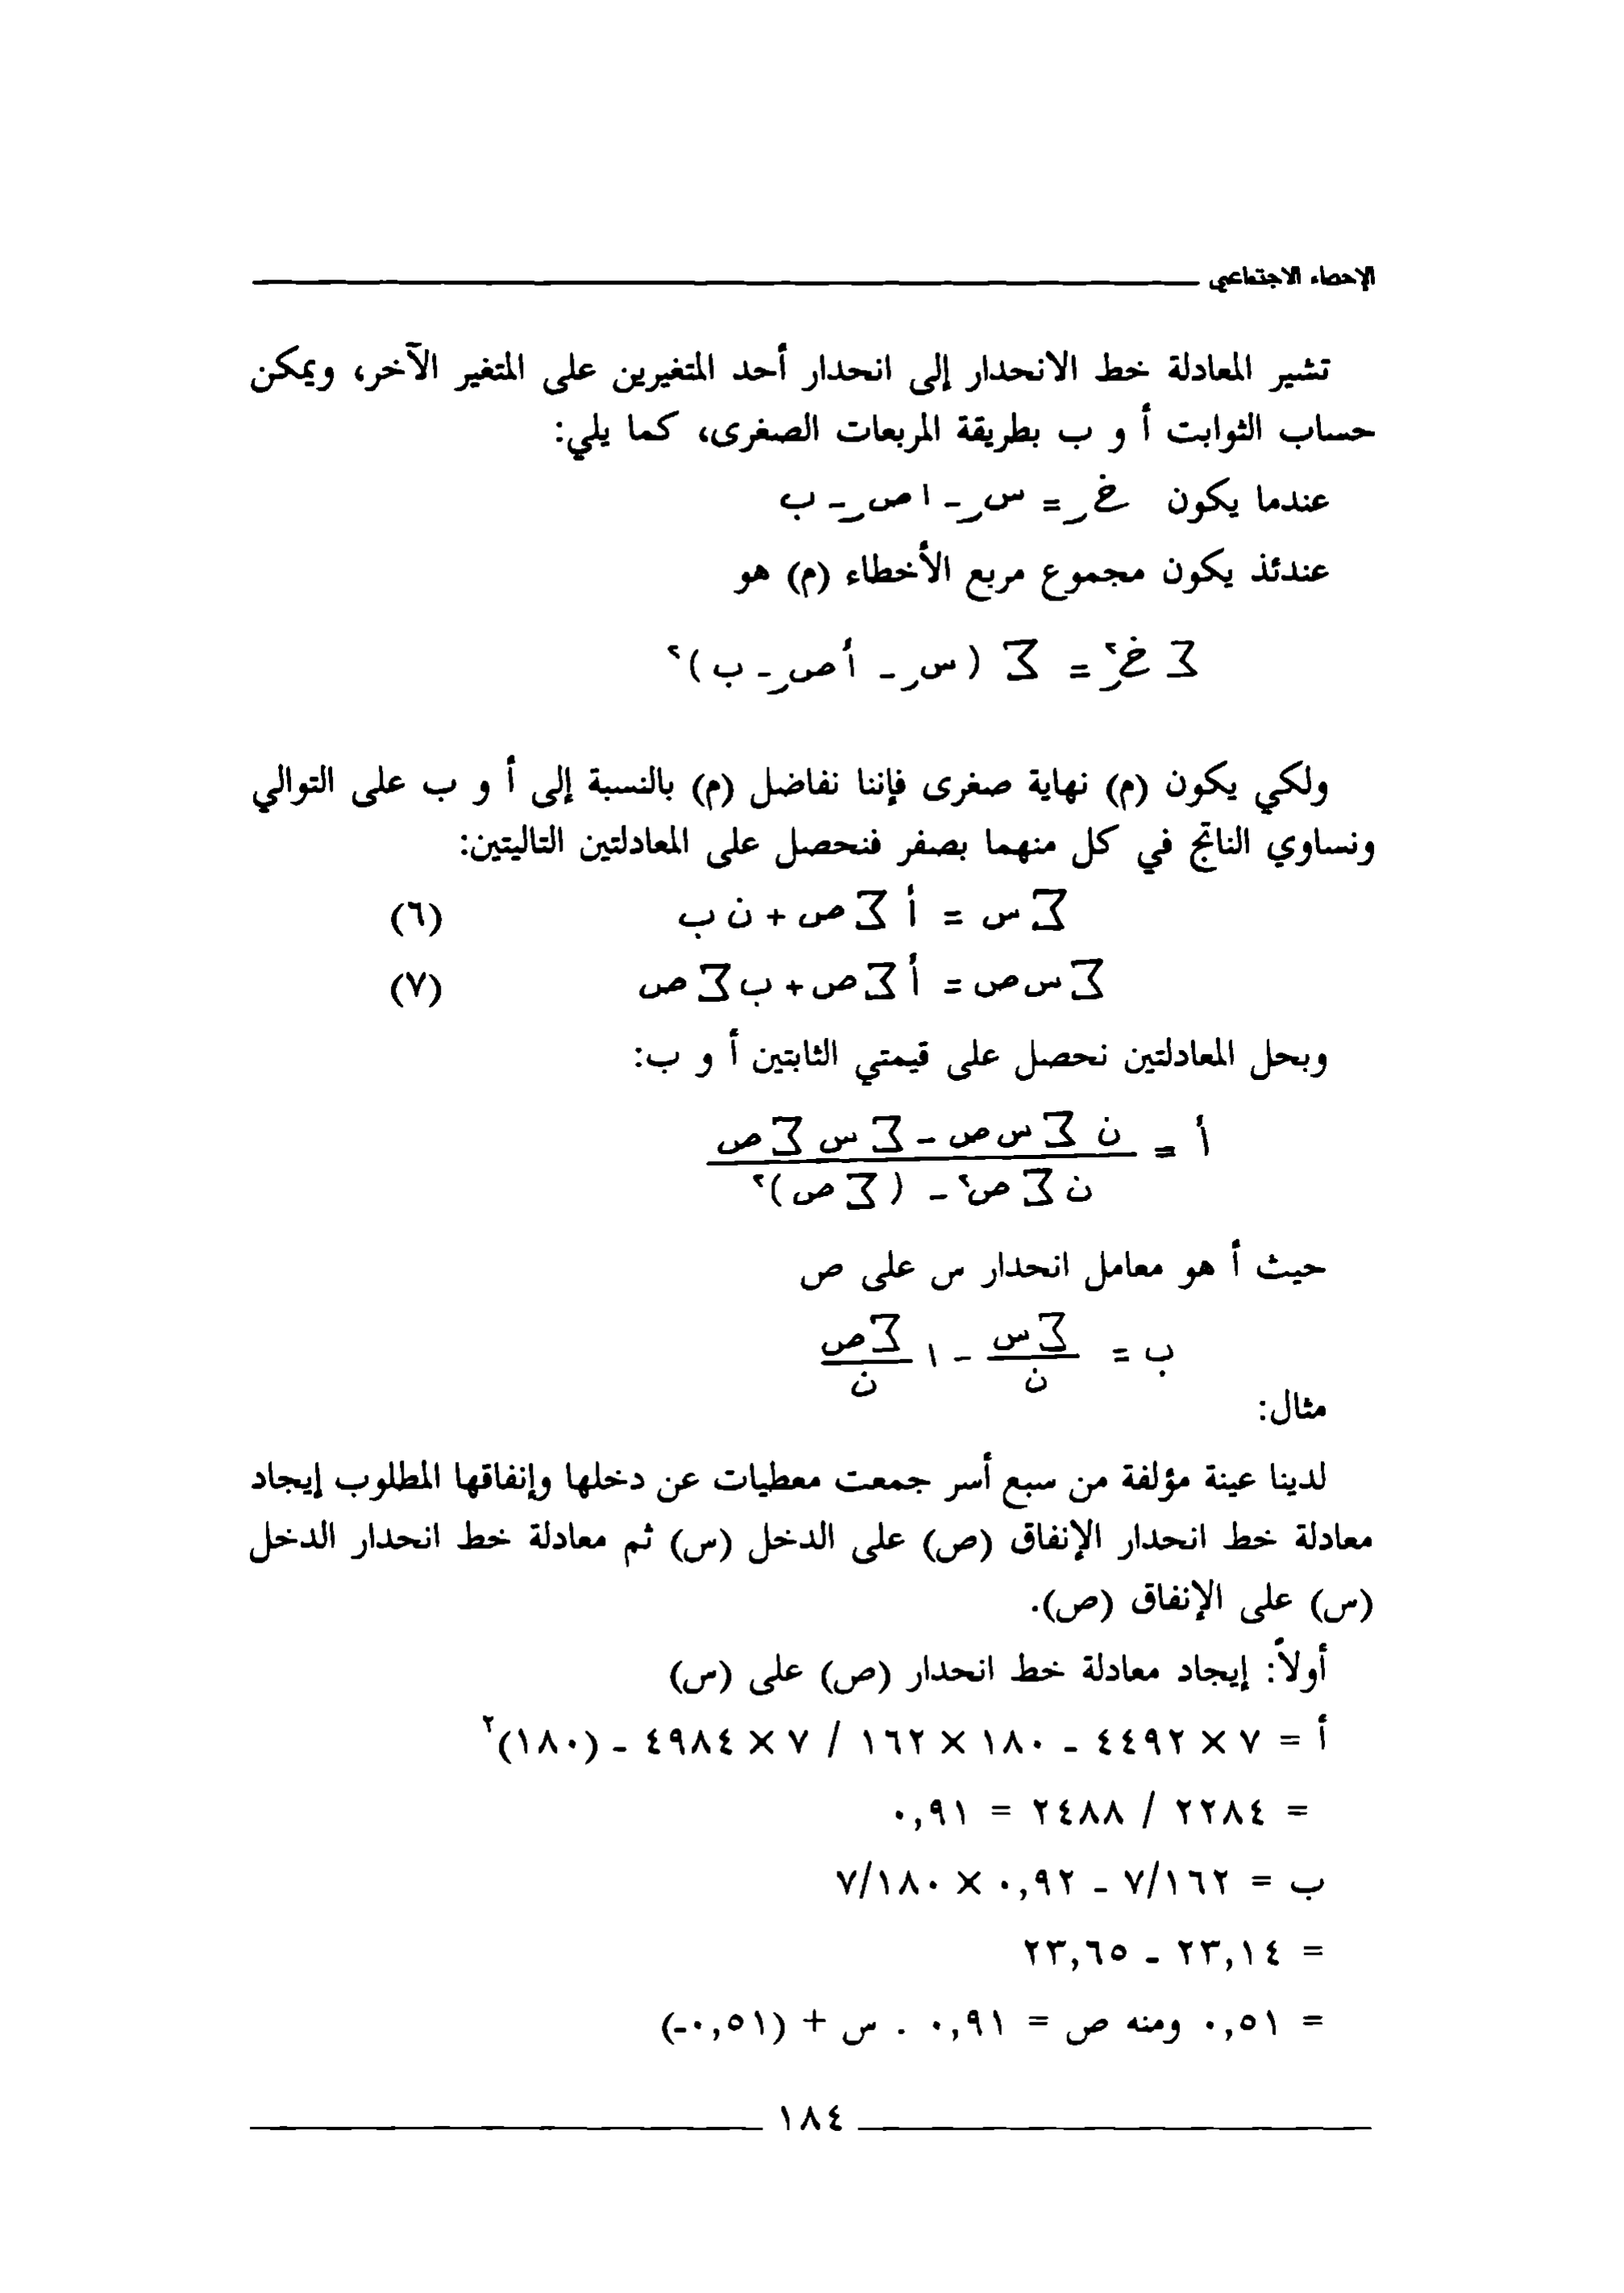 الإحصاء الاجتماعي
تشير المعادلة خط الانحدار إلى انحدار أحد المتغيرين على المتغير الآخر، ويمكن
حساب الثوابت أ و ب بطريقة المربعات الصغرى، كما يلي:
عندما يكون خر = سر - ا صر - ب
عندئذ يكون مجموع مربع الأخطاء (م) هو
∑ خر² = ∑ (سر - أصر - ب)²
ولكي يكون (م) نهاية صغرى فإننا نفاضل (م) بالنسبة إلى أ و ب على التوالي
ونساوي الناتج في كل منهما بصفر فنحصل على المعادلتين التاليتين:
∑س = أ ∑ص + ن ب (٦)
∑س ص = أ ∑ص + ب ∑ص (٧)
وبحل المعادلتين نحصل على قيمتي الثابتين أ و ب:
ن ∑س ص - ∑س ∑ص
أ =
ن ∑ص² - (∑ص)²
حيث أ هو معامل انحدار س على ص
∑س ∑ص
ب = - ا
ن ن
مثال:
لدينا عينة مؤلفة من سبع أسر جمعت معطيات عن دخلها وإنفاقها المطلوب إيجاد
معادلة خط انحدار الإنفاق (ص) على الدخل (س) ثم معادلة خط انحدار الدخل
(س) على الإنفاق (ص).
أولاً: إيجاد معادلة خط انحدار (ص) على (س)
أ = ٧ × ٤٤٩٢ - ١٨٠ × ١٦٢ / ٧ × ٤٩٨٤ - (١٨٠)²
= ٢٢٨٤ / ٢٤٨٨ = ٠,٩١
ب = ٧/١٦٢ - ٠,٩٢ × ٧/١٨٠
= ٢٣,١٤ - ٢٣,٦٥
= ٠,٥١ ومنه ص = ٠,٩١ . س + (٠,٥١-)
١٨٤